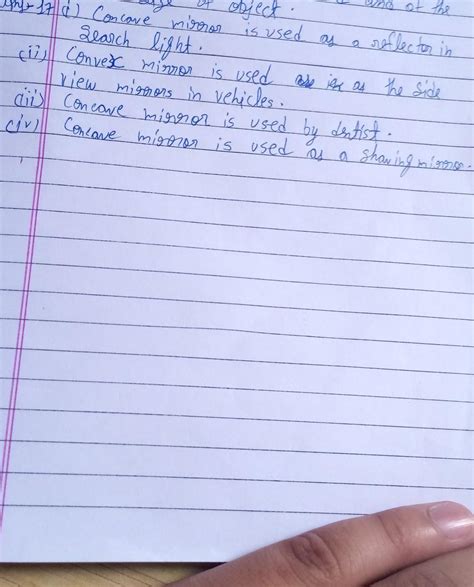 of object. and of the
Ans-17 (i) Concave mirror is used as a reflector in
search light.
(ii) Convex mirror is used as the side
view mirrors in vehicles.
(iii) Concave mirror is used by dentist.
(iv) Concave mirror is used as a shaving mirror.